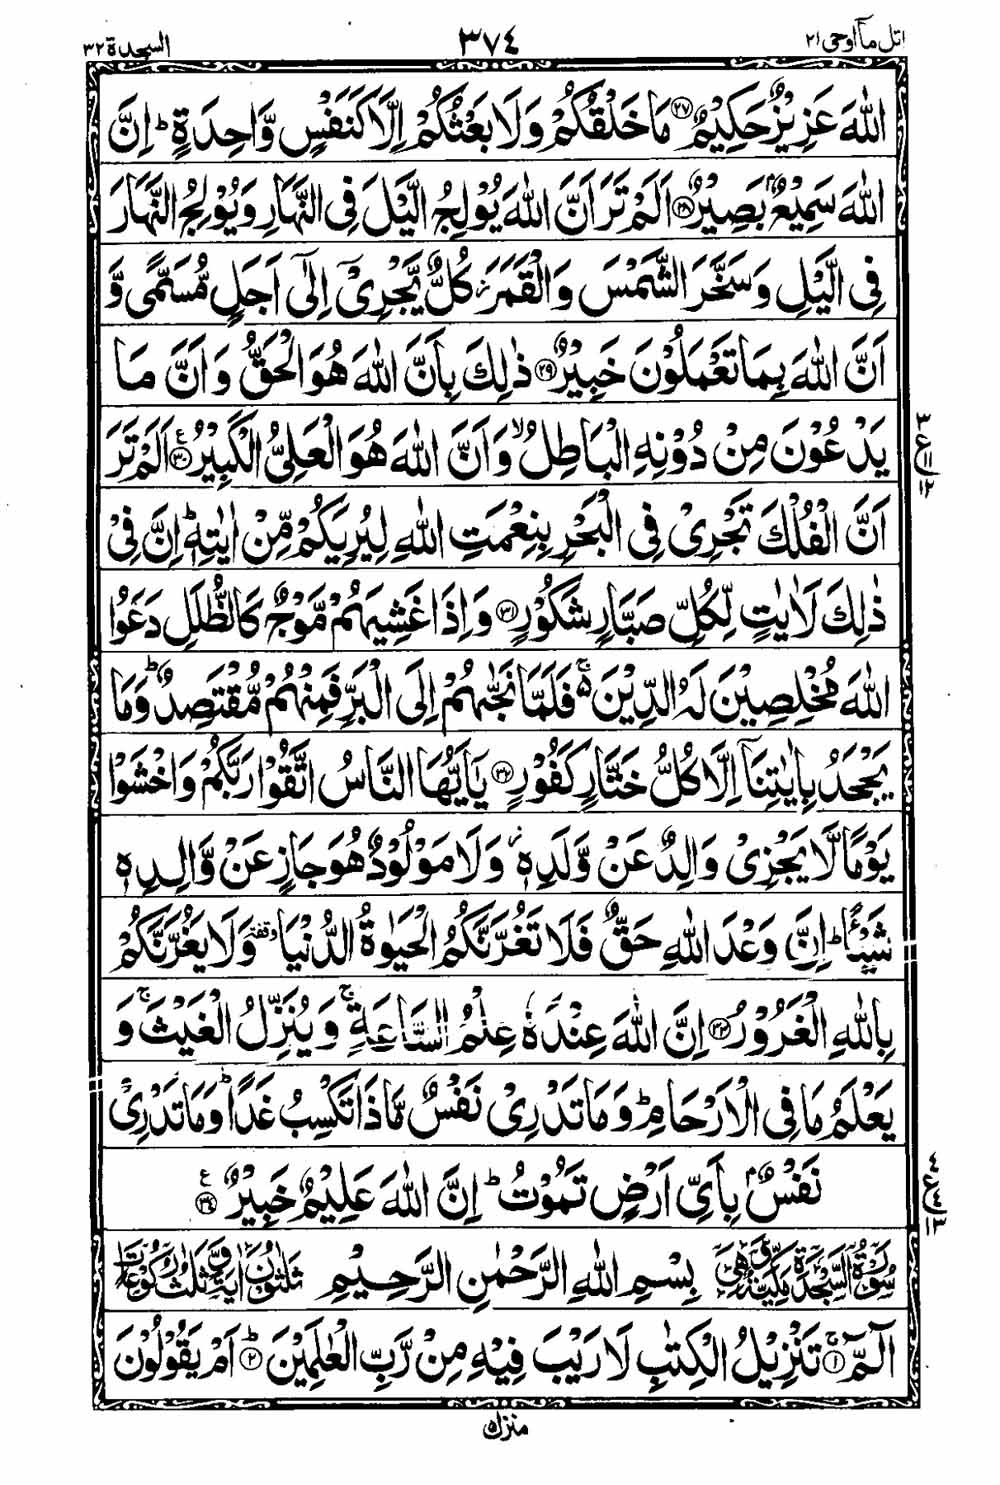 اتل مآ اوحی ٢١
٣٧٤
السجدة ٣٢
اللهَ عَزِيْزٌ حَكِيْمٌ ﴿٢٧﴾ مَا خَلْقُكُمْ وَلَا بَعْثُكُمْ اِلَّا كَنَفْسٍ وَّاحِدَةٍ ؕ اِنَّ
اللهَ سَمِيْعٌۢ بَصِيْرٌ ﴿٢٨﴾ اَلَمْ تَرَ اَنَّ اللهَ يُوْلِجُ الَّيْلَ فِى النَّهَارِ وَيُوْلِجُ النَّهَارَ
فِى الَّيْلِ وَسَخَّرَ الشَّمْسَ وَالْقَمَرَ ؗ كُلٌّ يَّجْرِىْۤ اِلٰٓى اَجَلٍ مُّسَمًّى وَّ
اَنَّ اللهَ بِمَا تَعْمَلُوْنَ خَبِيْرٌ ﴿٢٩﴾ ذٰلِكَ بِاَنَّ اللهَ هُوَ الْحَقُّ وَاَنَّ مَا
يَدْعُوْنَ مِنْ دُوْنِهِ الْبَاطِلُ ۙ وَاَنَّ اللهَ هُوَ الْعَلِىُّ الْكَبِيْرُ ﴿٣٠﴾ ع اَلَمْ تَرَ
٣ ع ١١ ١٢
اَنَّ الْفُلْكَ تَجْرِىْ فِى الْبَحْرِ بِنِعْمَتِ اللهِ لِيُرِيَكُمْ مِّنْ اٰيٰتِهٖ ؕ اِنَّ فِىْ
ذٰلِكَ لَاٰيٰتٍ لِّكُلِّ صَبَّارٍ شَكُوْرٍ ﴿٣١﴾ وَاِذَا غَشِيَهُمْ مَّوْجٌ كَالظُّلَلِ دَعَوُا
اللهَ مُخْلِصِيْنَ لَهُ الدِّيْنَ ۚ۬ فَلَمَّا نَجّٰىهُمْ اِلَى الْبَرِّ فَمِنْهُمْ مُّقْتَصِدٌ ؕ وَمَا
يَجْحَدُ بِاٰيٰتِنَاۤ اِلَّا كُلُّ خَتَّارٍ كَفُوْرٍ ﴿٣٢﴾ يٰۤاَيُّهَا النَّاسُ اتَّقُوْا رَبَّكُمْ وَاخْشَوْا
يَوْمًا لَّا يَجْزِىْ وَالِدٌ عَنْ وَّلَدِهٖ ؗ وَلَا مَوْلُوْدٌ هُوَ جَازٍ عَنْ وَّالِدِهٖ
شَيْـًٔا ؕ اِنَّ وَعْدَ اللهِ حَقٌّ فَلَا تَغُرَّنَّكُمُ الْحَيٰوةُ الدُّنْيَا وقفة وَلَا يَغُرَّنَّكُمْ
بِاللهِ الْغَرُوْرُ ﴿٣٣﴾ اِنَّ اللهَ عِنْدَهٗ عِلْمُ السَّاعَةِ ۚ وَيُنَزِّلُ الْغَيْثَ ۚ وَ
يَعْلَمُ مَا فِى الْاَرْحَامِ ؕ وَمَا تَدْرِىْ نَفْسٌ مَّاذَا تَكْسِبُ غَدًا ؕ وَمَا تَدْرِىْ
نَفْسٌۢ بِاَىِّ اَرْضٍ تَمُوْتُ ؕ اِنَّ اللهَ عَلِيْمٌ خَبِيْرٌ ﴿٣٤﴾ ع
٤ ع ٤ ١٣
سُوْرَةُ السَّجْدَةِ مَكِّيَّةٌ وَّهِىَ بِسْمِ اللهِ الرَّحْمٰنِ الرَّحِيْمِ ثَلٰثُوْنَ اٰيَةً وَّثَلٰثُ رُكُوْعَاتٍ
الٓمّٓ ۚ ﴿١﴾ تَنْزِيْلُ الْكِتٰبِ لَا رَيْبَ فِيْهِ مِنْ رَّبِّ الْعٰلَمِيْنَ ؕ ﴿٢﴾ اَمْ يَقُوْلُوْنَ
منزل ٥